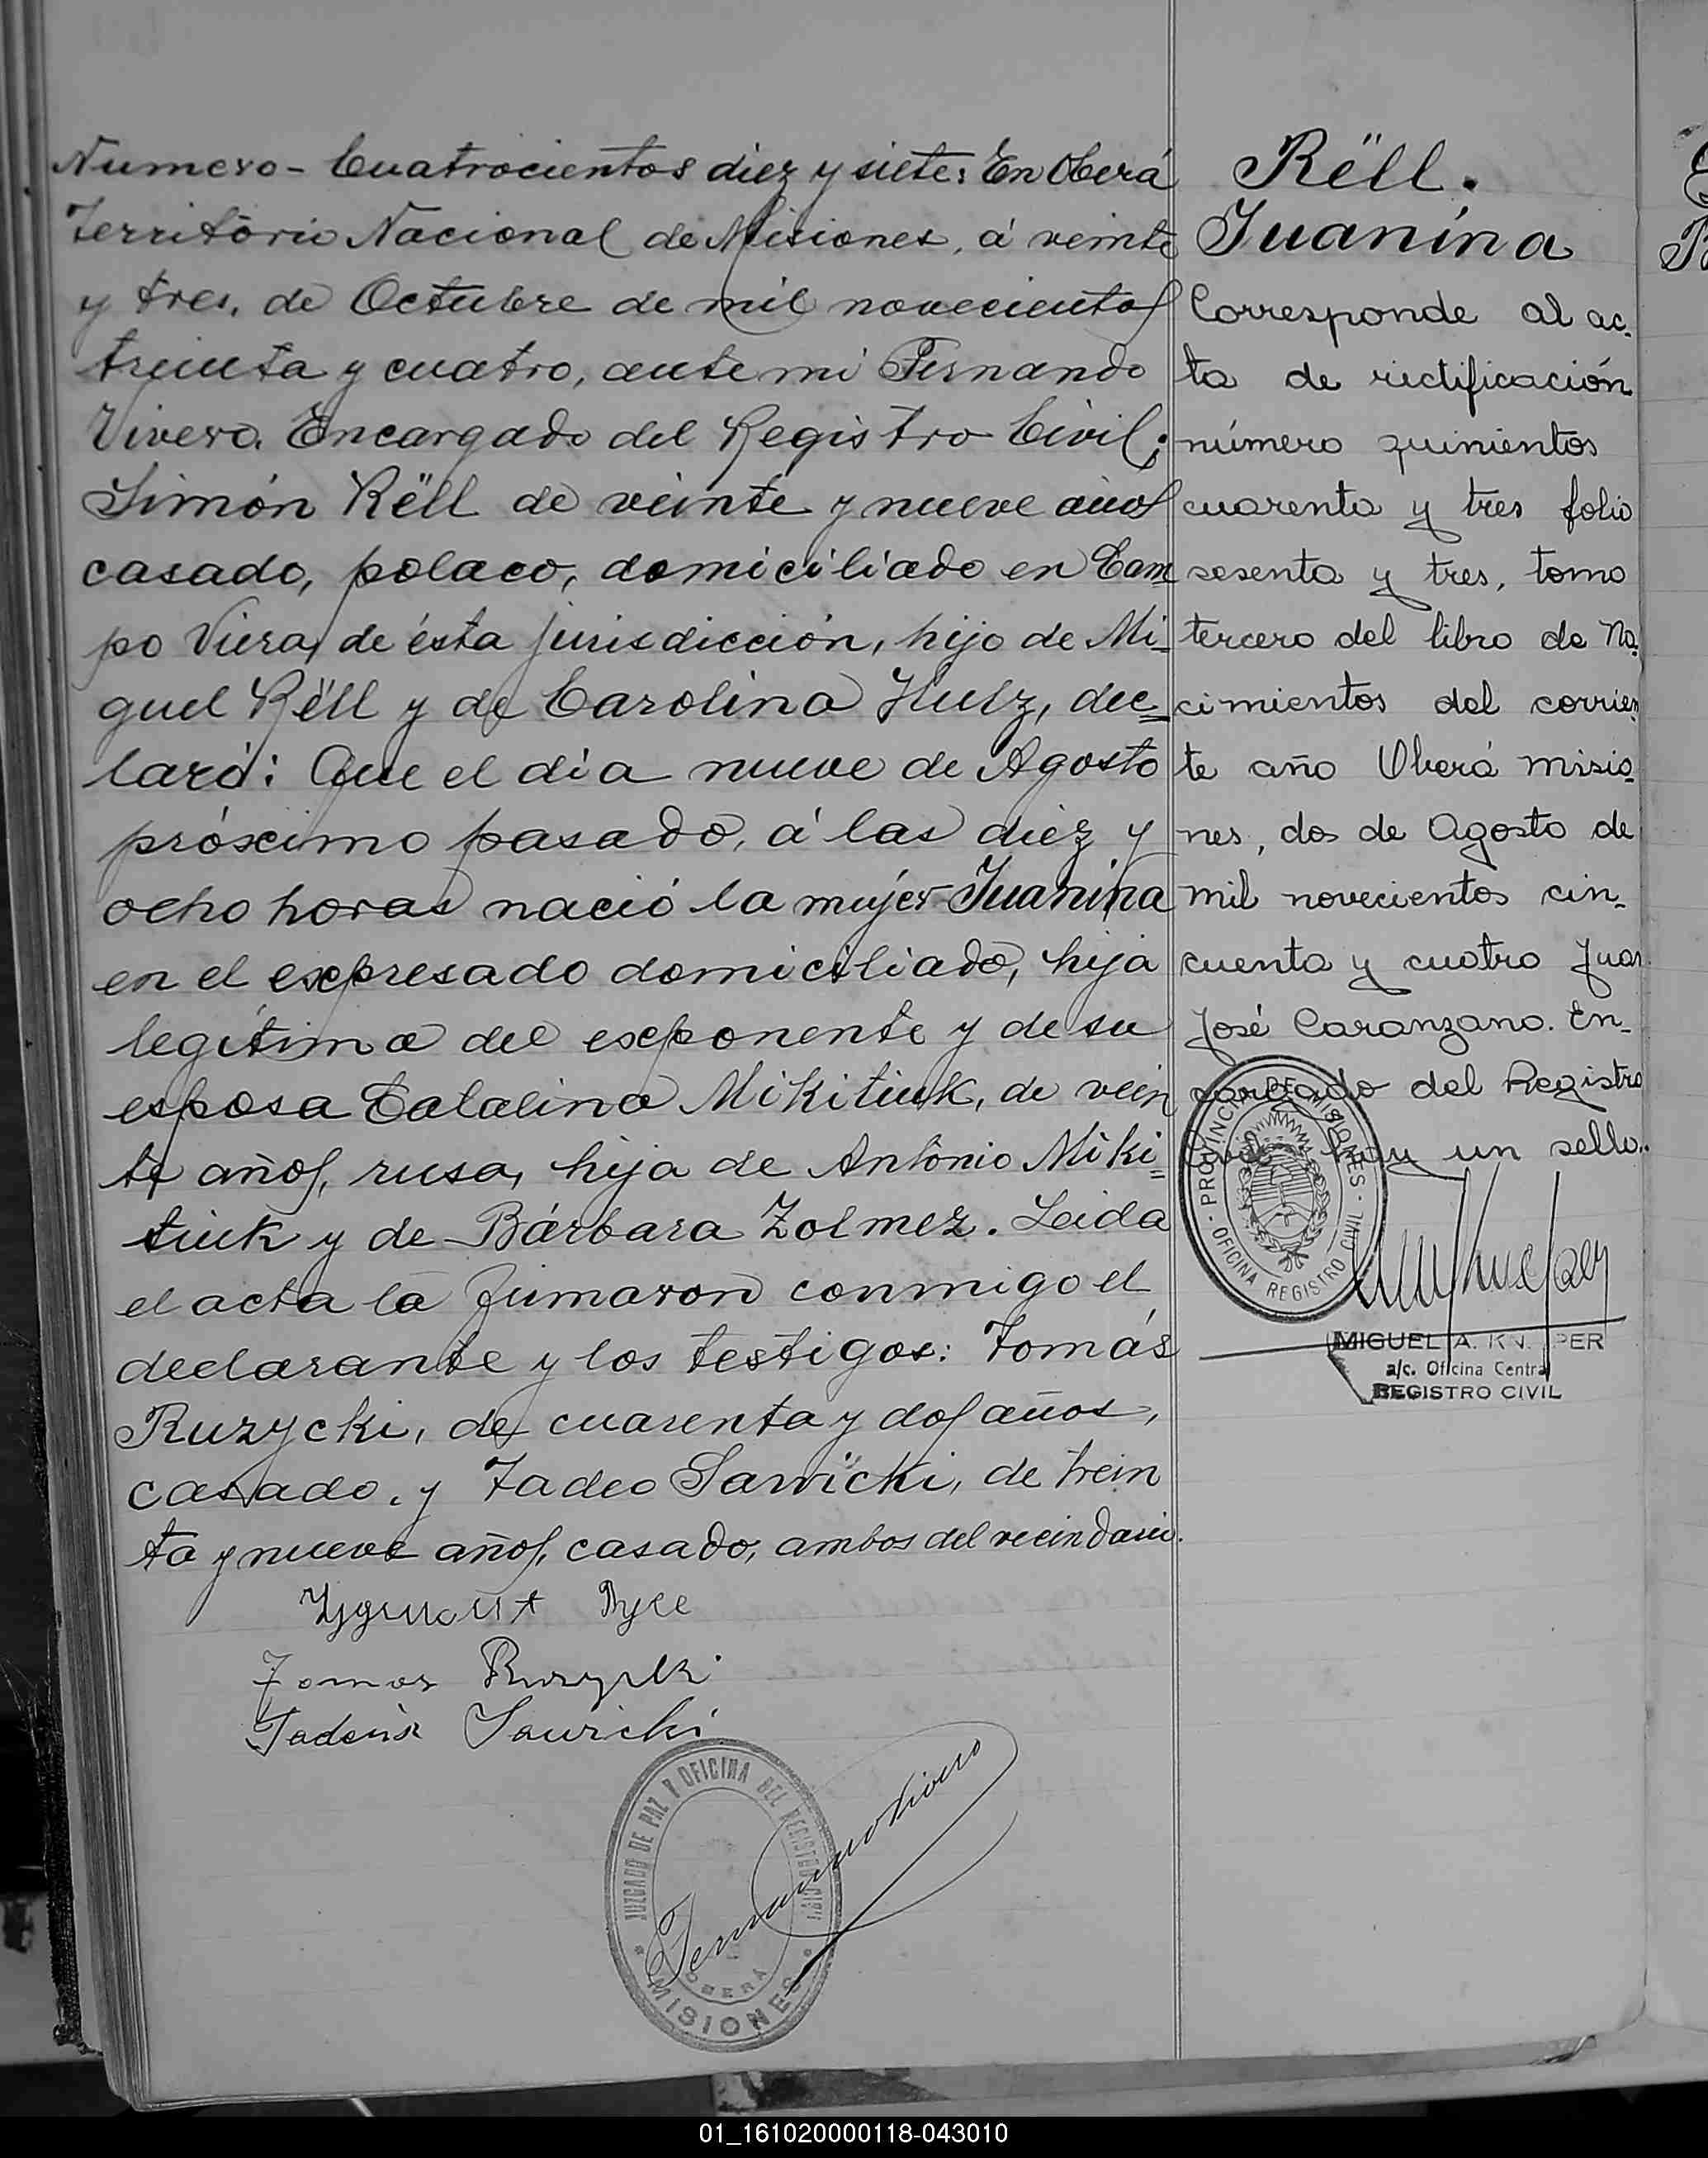 Numero - Cuatrocientos diez y siete: En Oberá
Territorio Nacional de Misiones, á veinte
y tres, de Octubre de mil novecientos
treinta y cuatro, ante mi Fernando
Vivero. Encargado del Registro Civil;
Simón Rëll de veinte y nueve años
casado, polaco, domiciliado en Cam
po Viera, de ésta jurisdicción, hijo de Mi-
guel Rëll y de Carolina Hulz, dec=
laró: Que el día nueve de Agosto
próximo pasado, á las diez y
ocho horas nació la mujer Juanina
en el expresado domiciliado, hija
legítima del exponente y de su
esposa Catalina Mikitiuk, de vein
te años, rusa, hija de Antonio Miki=
tiuk y de Bárbara Zolmez. Leida
el acta la firmaron conmigo el
declarante y los testigos: Tomás
Ruzycki, de cuarenta y dos años,
casado, y Tadeo Sawicki, de trein
ta y nueve años, casado, ambos del vecindario.
Tomas Ruzycki
Tadeusz Sawicki
JUZGADO DE PAZ Y OFICINA DEL REGISTRO CIVIL
OBERÁ
MISIONES
Fernando Vivero
Rëll.
Juanina
Corresponde al ac-
ta de rectificación
número quinientos
cuarenta y tres folio
sesenta y tres, tomo
tercero del libro de Na-
cimientos del corrien
te año Oberá misio-
nes, dos de Agosto de
mil novecientos cin-
cuenta y cuatro Juan
José Caranzano. En-
cargado del Registro
hay un sello.
PROVINCIA DE MISIONES - OFICINA REGISTRO CIVIL
MIGUEL A. PER
a/c. Oficina Central
REGISTRO CIVIL
01_161020000118-043010